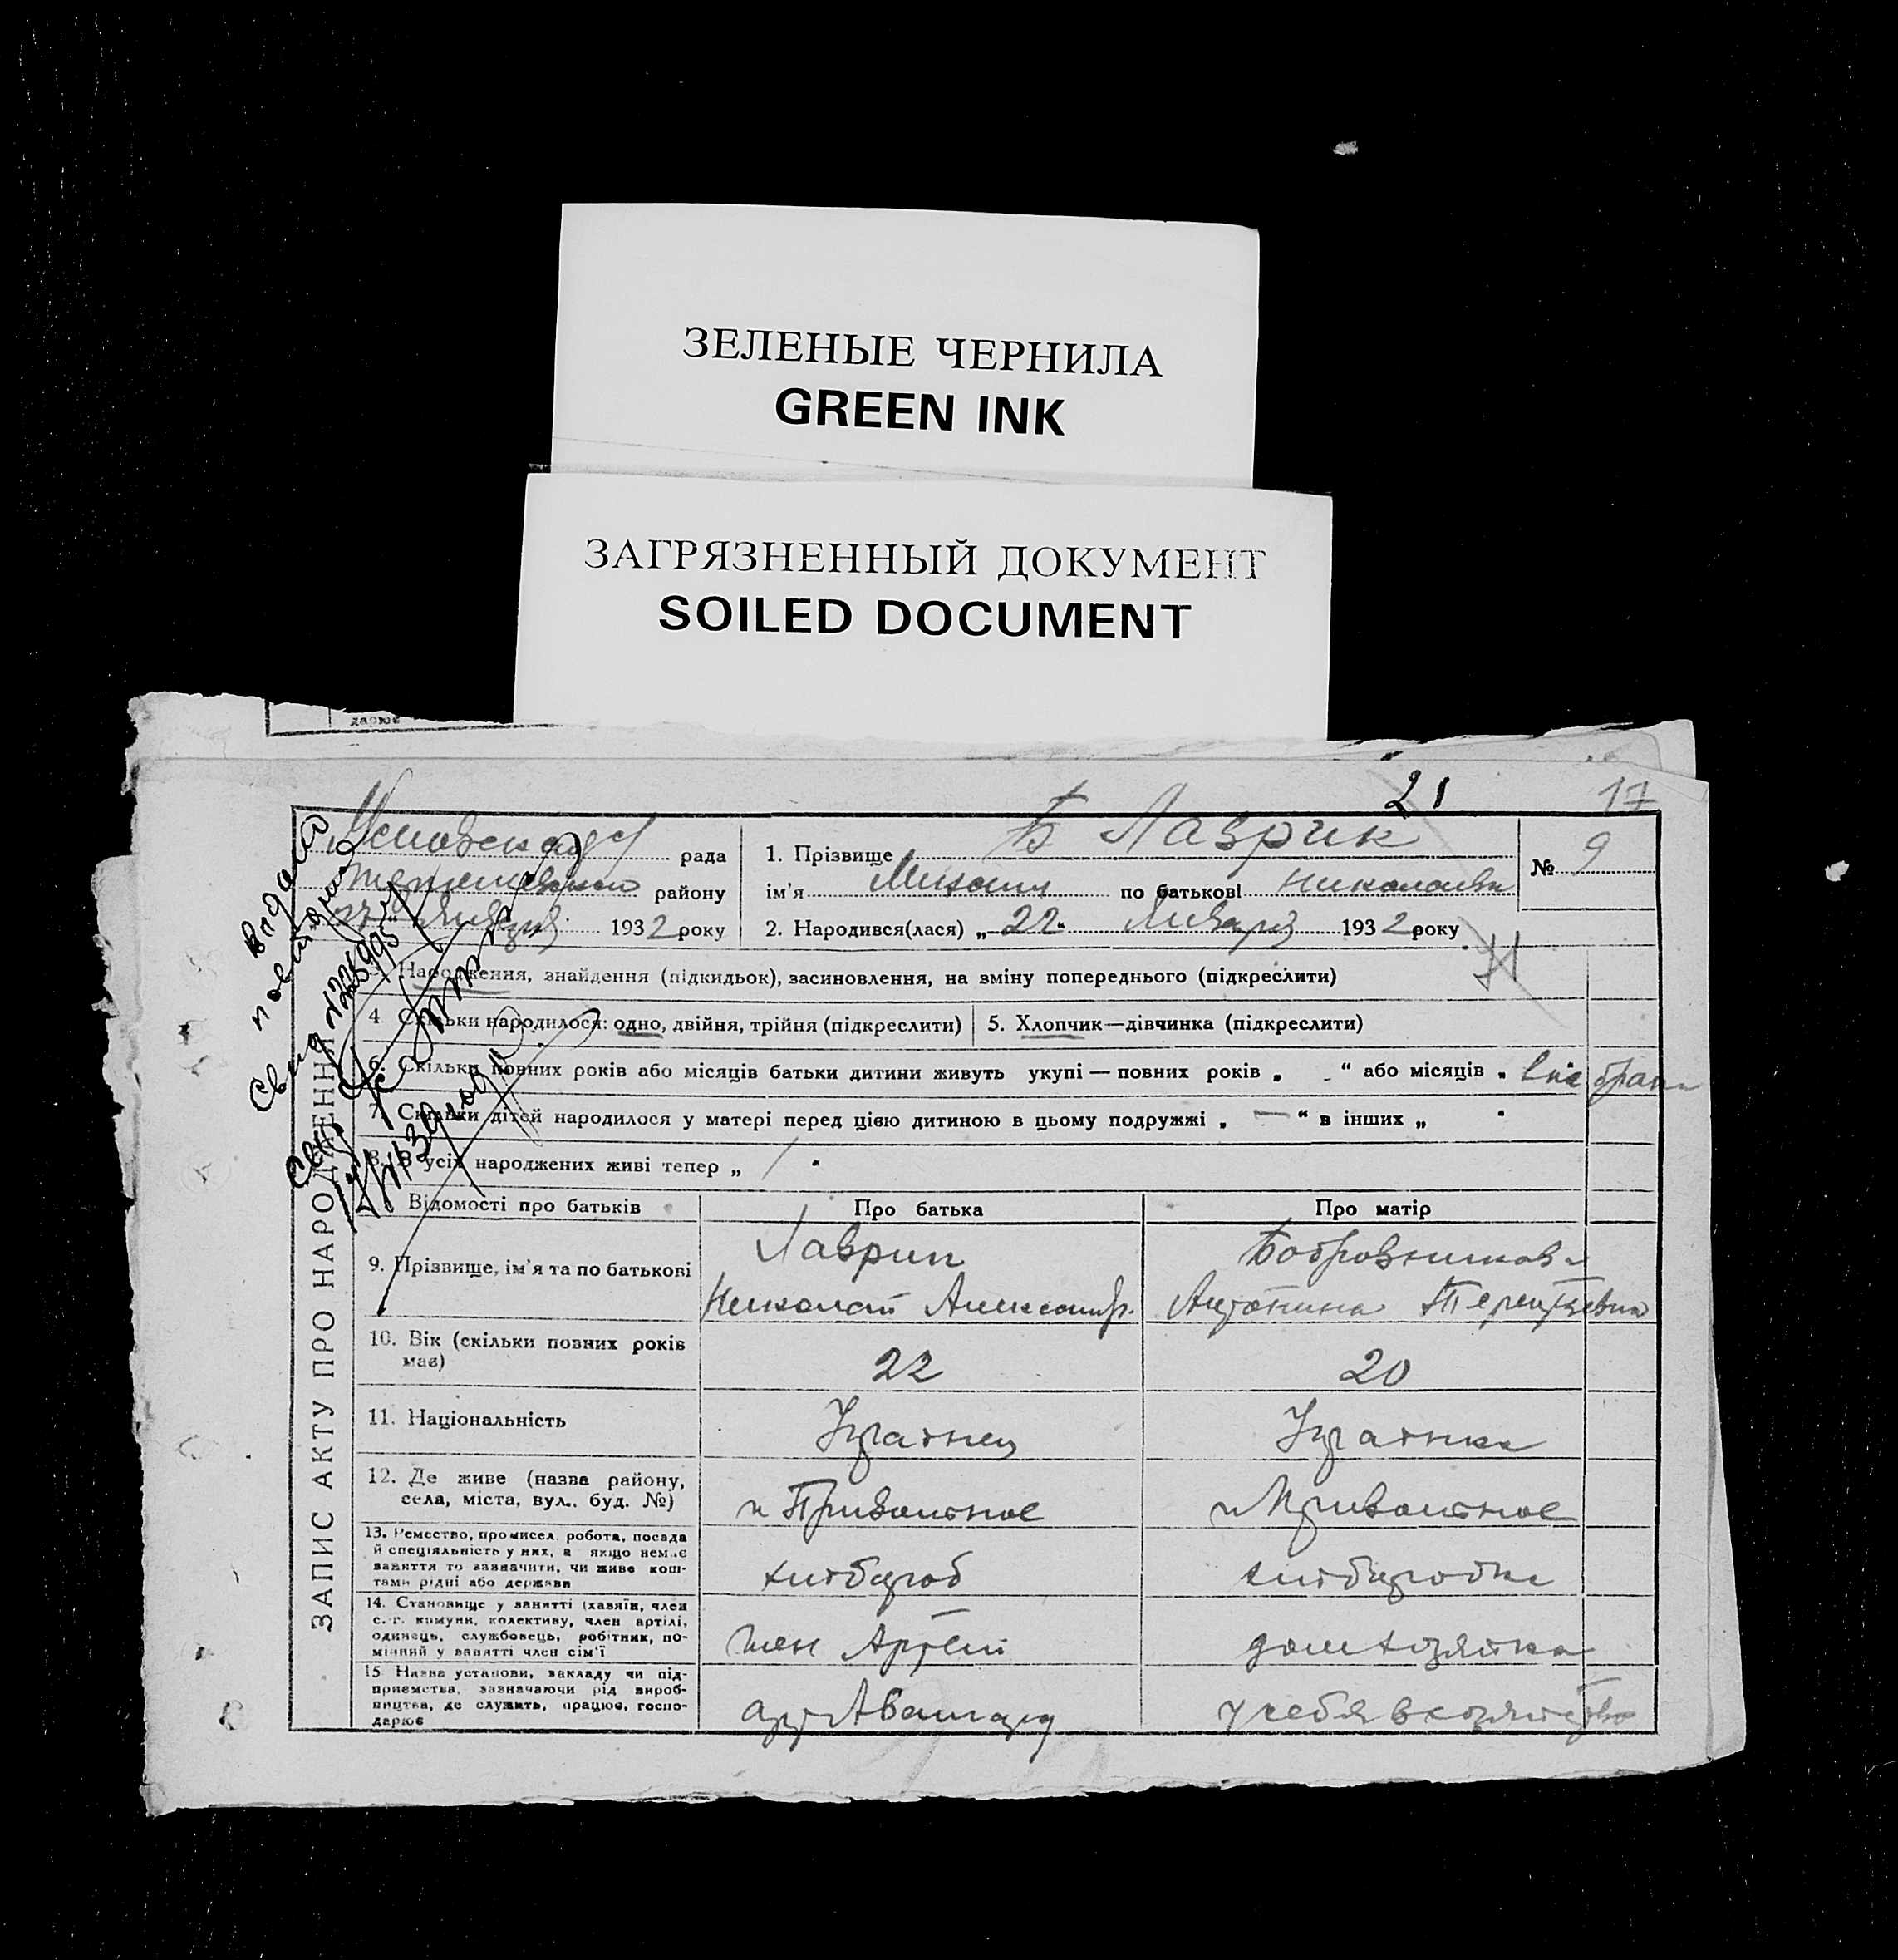 ЗЕЛЕНЫЕ ЧЕРНИЛА
GREEN INK
ЗАГРЯЗНЕННЫЙ ДОКУМЕНТ
SOILED DOCUMENT
дарює
21
17
рада
району
января 1932 року
1. Прізвище Б Лаврик
ім'я Михаил по батькові Николаевич
2. Народився(лася) „22“ Января 1932 року
№ 9
ЗАПИС АКТУ ПРО НАРОДЖЕННЯ
3. Народження, знайдення (підкидьок), засиновлення, на зміну попереднього (підкреслити)
4 Скільки народилося: одно, двійня, трійня (підкреслити)
5. Хлопчик—дівчинка (підкреслити)
6. Скільки повних років або місяців батьки дитини живуть укупі — повних років „ “ або місяців „ вне брака
7. Скільки дітей народилося у матері перед цією дитиною в цьому подружжі „ — “ в інших „
8. В усіх народжених живі тепер „
Відомості про батьків
Про батька
Про матір
9. Прізвище, ім'я та по батькові
Лаврик
Николай Александр.
Бобровникова
Антонина Терентьевна
10. Вік (скільки повних років має)
22
20
11. Національність
Украинец
Украинка
12. Де живе (назва району,
села, міста, вул., буд. №)
х Привольное
х Привольное
13. Ремество, промисел, робота, посада
й спеціяльність у них, а якщо немає
заняття то зазначити, чи живе кош-
тами рідні або держави
хлебороб
хлеборобка
14. Становище у занятті (хазяїн, член
с.-г. комуни, колективу, член артілі,
одинець, службовець, робітник, по-
мічний у занятті член сім'ї
член Артели
домохозяйка
15 Назва установи, закладу чи під-
приємства, зазначаючи рід вироб-
ництва, де служить, працює, госпо-
дарює
арт Авангард
у себя в хозяйстве